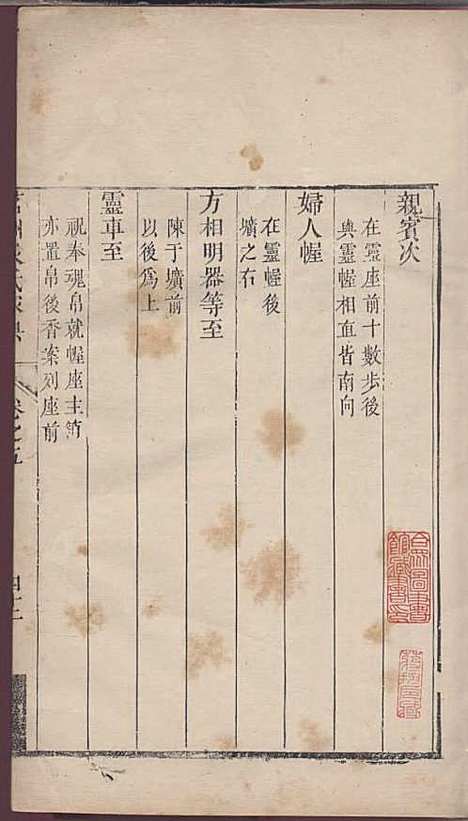 親賓次
在靈座前十數步後
與靈幄相直皆南向
婦人幄
在靈幄後
壙之右
方相明器等至
陳于壙前
以後爲上
靈車至
祝奉魂帛就幄座主箱
亦置帛後香案列座前
氏家
卷之五